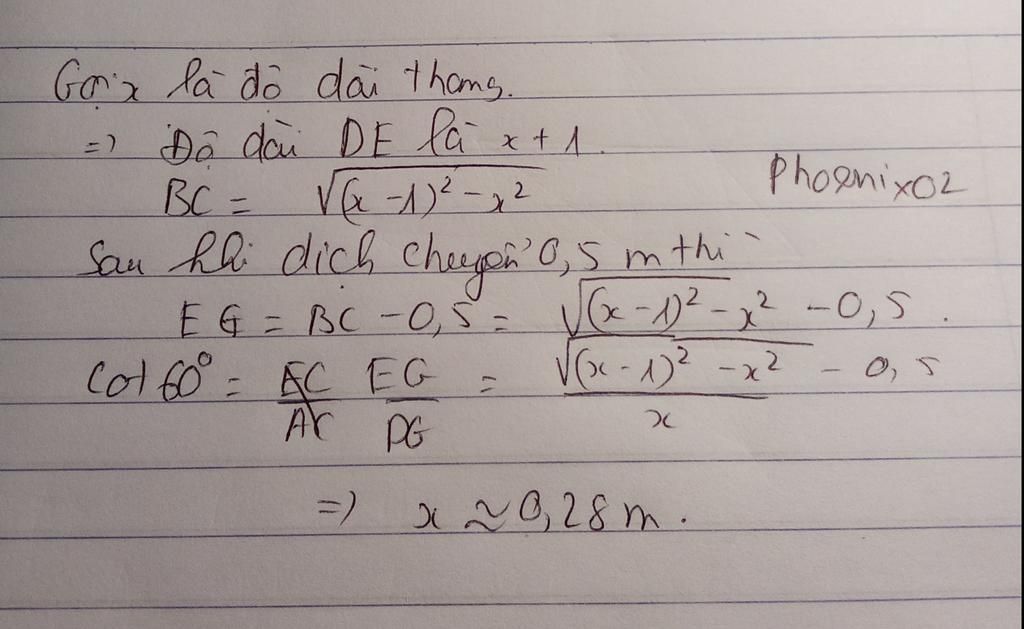 Gọi x là độ dài thang.
=> Độ dài DE là x + 1.
BC = √((x - 1)² - x²)
Phoenix02
Sau khi dịch chuyển 0,5 m thì
EG = BC - 0,5 = √((x - 1)² - x²) - 0,5.
Cot 60° = EG/DG = (√((x - 1)² - x²) - 0,5)/x
=> x ≈ 0,28 m.